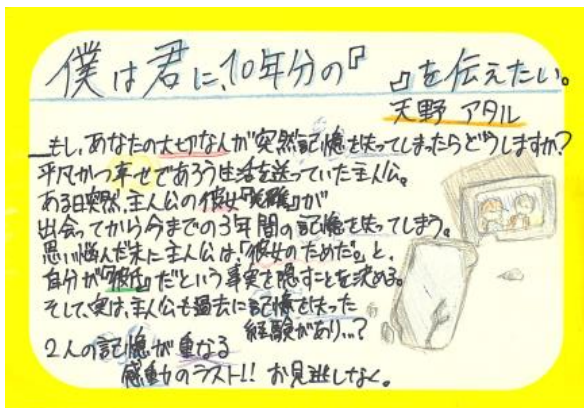 僕は君に、10年分の『　』を伝えたい。
天野 アタル
もし、あなたの大切な人が突然記憶を失ってしまったらどうしますか?
平凡かつ幸せであろう生活を送っていた主人公。
ある日突然、主人公の彼女『』が
出会ってから今までの3年間の記憶を失ってしまう。
思い悩んだ末に主人公は、「彼女のためだ。」と、
自分が『彼氏』だという事実を隠すことを決める。
そして、実は、主人公も過去に記憶を失った
経験があり…?
2人の記憶が重なる
感動のラスト!! お見逃しなく。